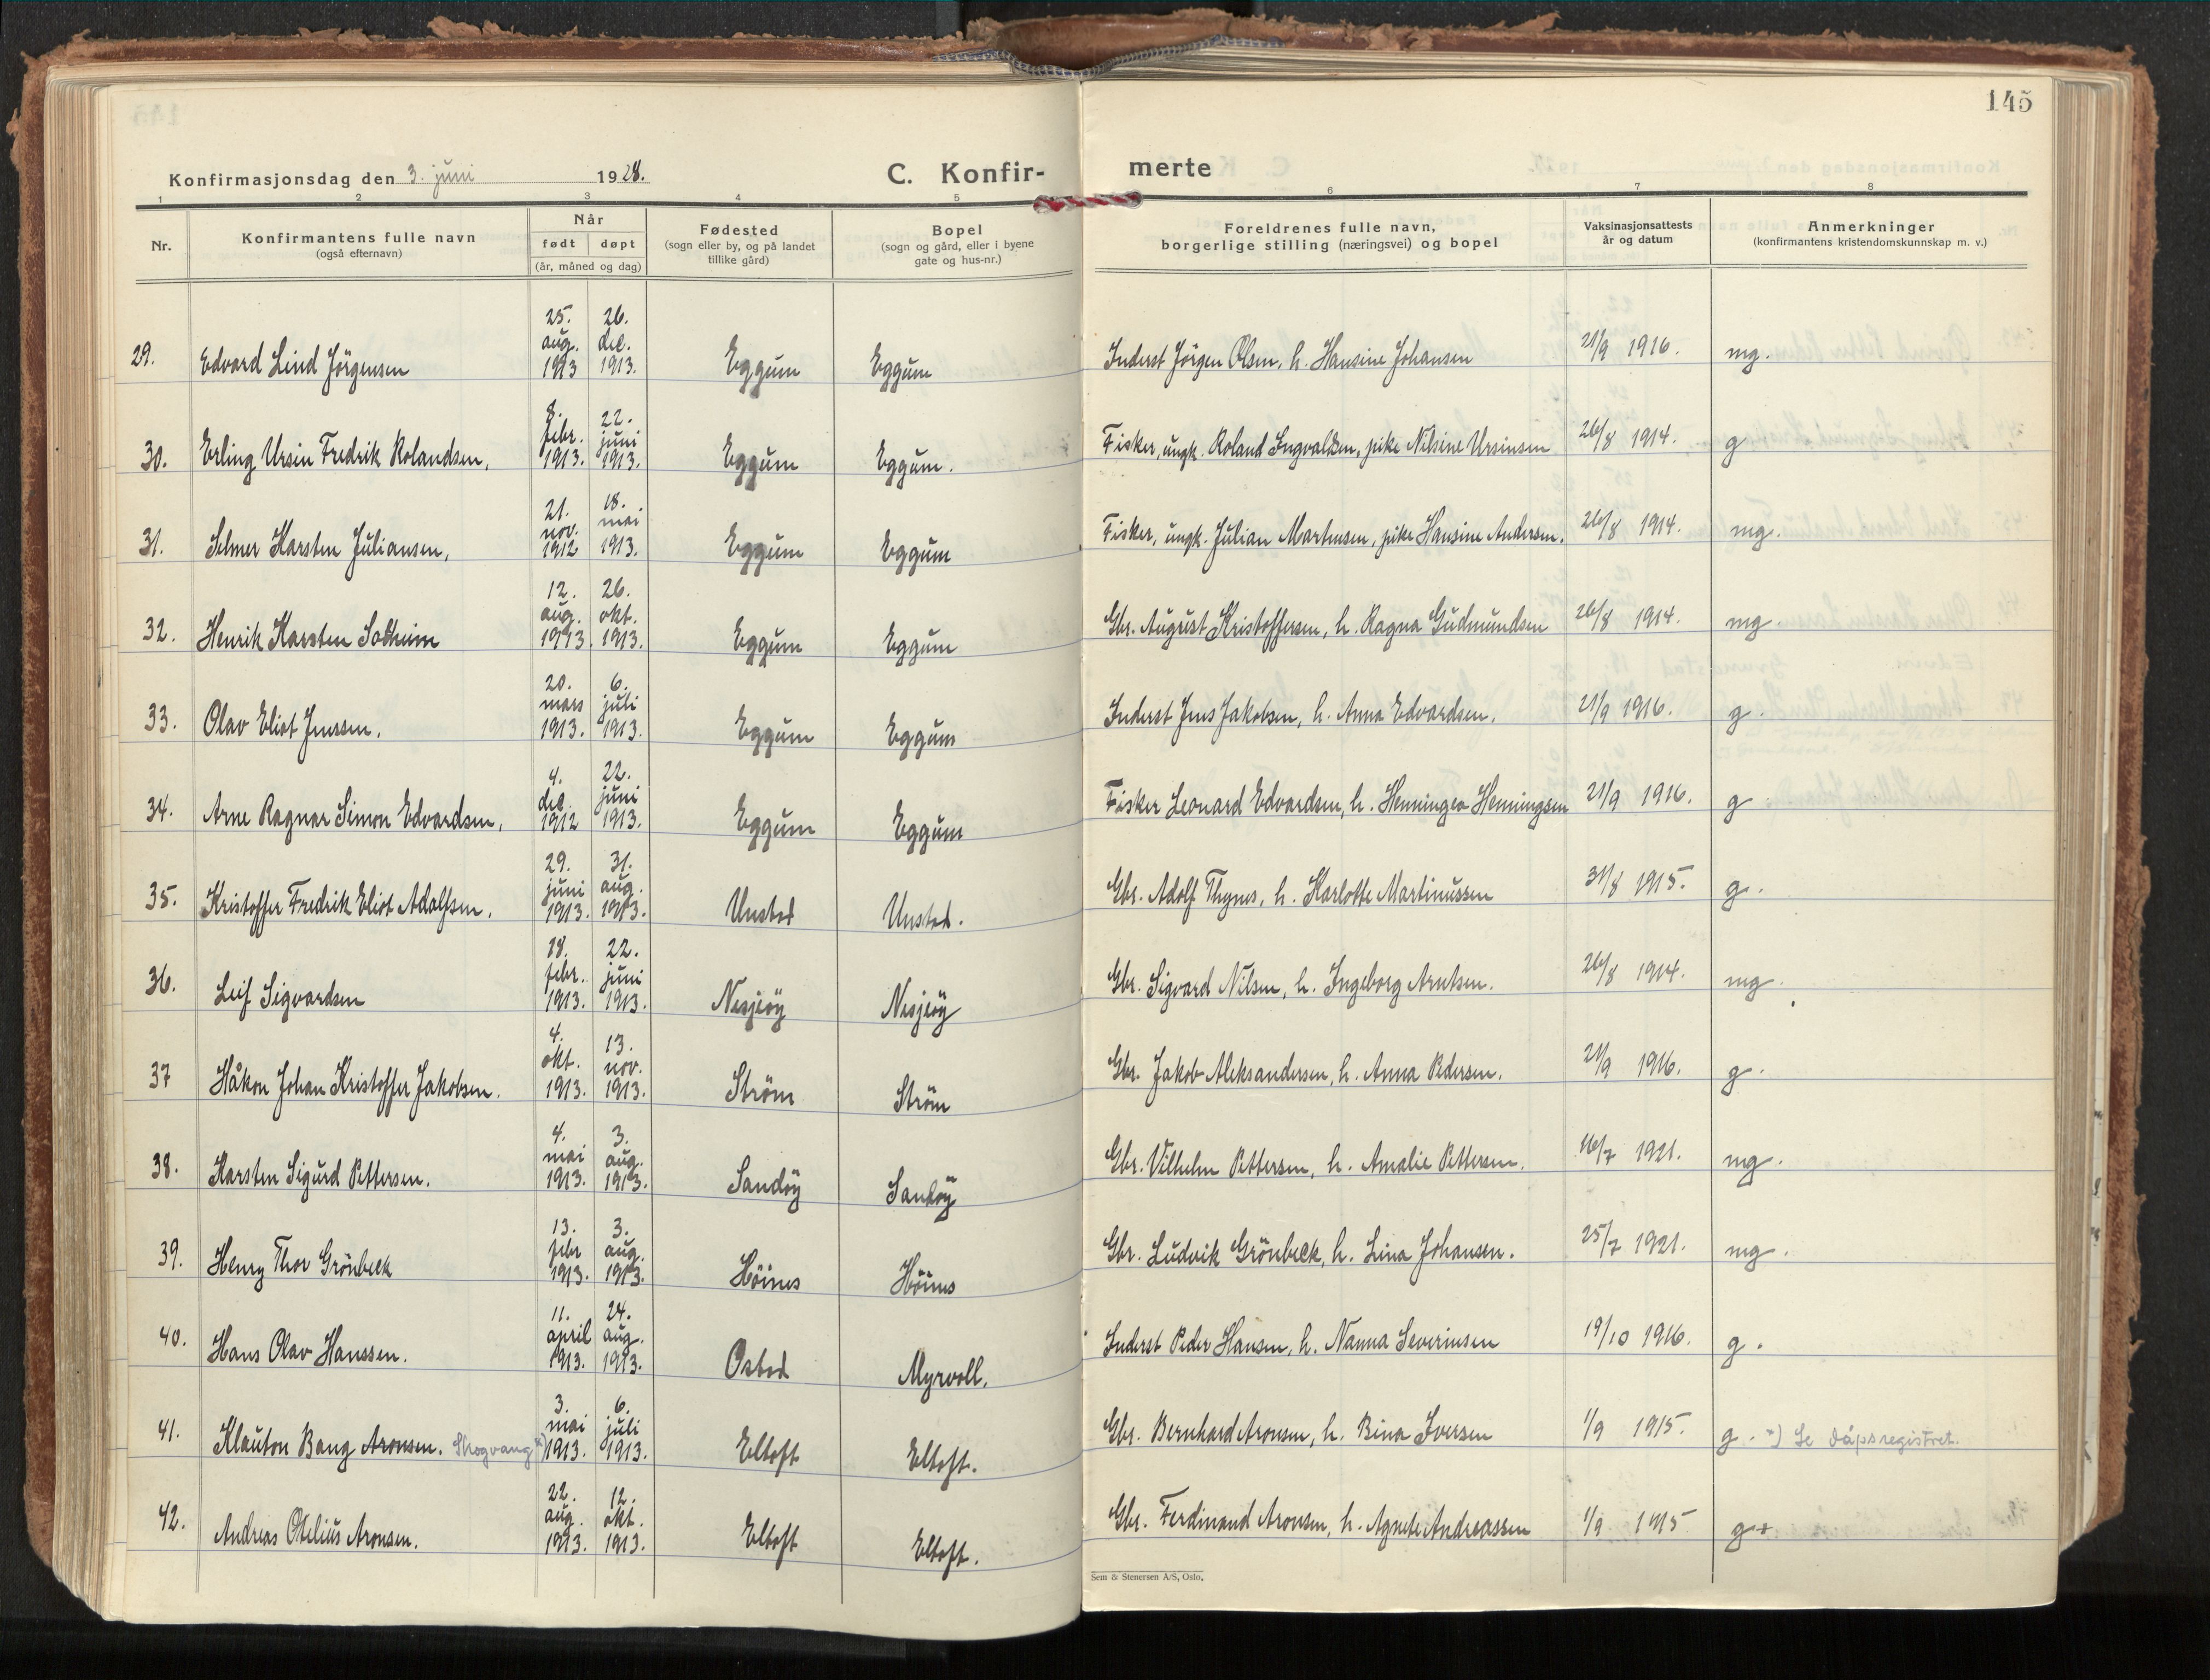 145
Konfirmasjonsdag den 3. juni 1928. C. Konfir- merte
1 2 3 4 5 6 7 8
Nr. Konfirmantens fulle navn (også efternavn) Når født døpt (år, måned og dag) Fødested (sogn eller by, og på landet tillike gård) Bopel (sogn og gård, eller i byene gate og hus-nr.) Foreldrenes fulle navn, borgerlige stilling (næringsvei) og bopel Vaksinasjonsattests år og datum Anmerkninger (konfirmantens kristendomskunnskap m. v.)
29. Edvard Lind Jörgensen 25. aug. 1913 26. dec. 1913. Eggum Eggum Inderst Jörgen Olsen, h. Hansine Johansen 21/9 1916. mg.
30. Erling Ursin Fredrik Rolandsen, 8. febr. 1913. 22. juni 1913. Eggum Eggum. Fisker, ungk. Roland Ingvaldsen, pike Nilsine Ursinsen 26/8 1914. g
31. Selmer Karsten Juliansen, 21. nov. 1912 18. mai 1913. Eggum Eggum Fisker, ungk. Julian Martensen, pike Hansine Andersen. 26/8 1914. mg.
32. Henrik Karsten Solheim 12. aug. 1913. 26. okt. 1913. Eggum Eggum Gbr. August Kristoffersen, h. Ragna Gudmundsen 26/8 1914. mg.
33. Olav Eliot Jenssen. 20. mars 1913. 6. juli 1913. Eggum Eggum Inderst Jens Jakobsen, h. Anna Edvardsen. 21/9 1916. g.
34. Arne Ragnar Simon Edvardsen, 4. dec. 1912 22. juni 1913. Eggum Eggum Fisker Leonard Edvardsen, h. Henningea Henningsen 21/9 1916. g.
35. Kristoffer Fredrik Eliot Adolfsen. 29. juni 1913. 31. aug. 1913. Unstad Unstad. Gbr. Adolf Thynes, h. Karlotte Martinussen 31/8 1915. g.
36. Leif Sigvardsen 18. febr. 1913. 22. juni 1913. Nesjeöy Nesjeöy Gbr. Sigvard Nilsen, h. Ingeborg Arntsen. 26/8 1914. mg.
37 Håkon Johan Kristoffer Jakobsen. 4. okt. 1913. 13. nov. 1913. Ström Ström Gbr. Jakob Aleksandersen, h. Anna Pedersen. 21/9 1916. g.
38. Karsten Sigurd Pettersen. 4. mai 1913. 3. aug. 1913. Sandöy Sandöy Gbr. Vilhelm Pettersen, h. Amalie Pettersen. 16/7 1921. mg.
39. Henry Thor Grönbeck 13. febr 1913. 3. aug. 1913. Höines Höines Gbr. Ludvik Grönbeck, h. Lina Johansen. 25/7 1921. mg.
40. Hans Olav Hanssen. 11. april 1913. 24. aug. 1913. Ostad Myrvoll. Inderst Peder Hansen, h. Nanna Severinsen 19/10 1916. g.
41. Klauton Bang Aronsen. Skogvang *) 3. mai 1913. 6. juli 1913. Eltoft Eltoft. Gbr. Bernhard Aronsen, h. Bina Iversen 1/9 1915. g. *) Se dåpsregistret.
42. Andreas Otelius Aronsen. 22. aug. 1913. 12. okt. 1913. Eltoft Eltoft. Gbr. Ferdinand Aronsen, h. Agnete Andreassen 1/9 1915 g+
Sem & Stenersen A/S, Oslo.